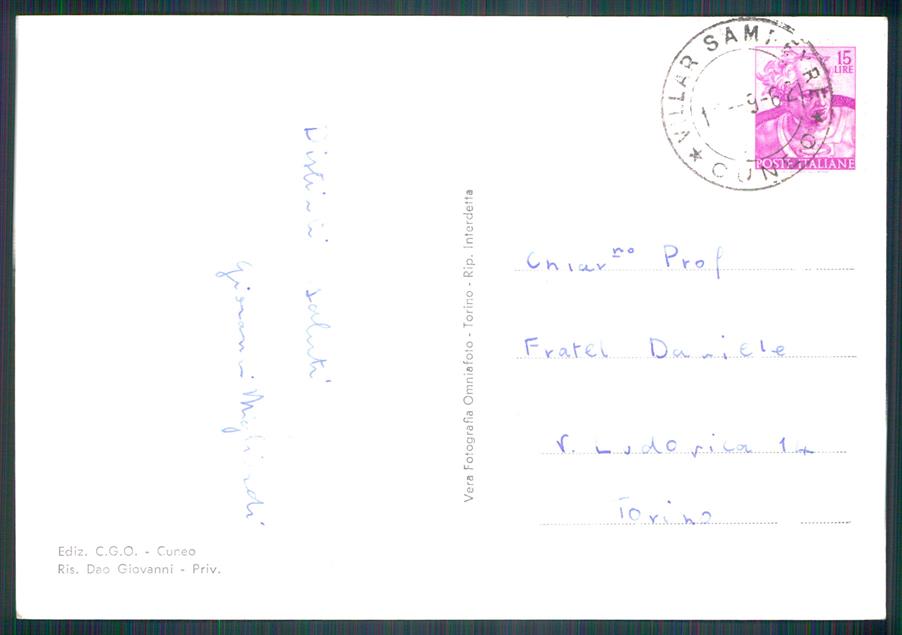 VILLAR SAMPEYRE * CUNEO *
-9-62
15
LIRE
POSTE ITALIANE
Distinti saluti
Giovanni
Vera Fotografia Omniafoto - Torino - Rip. Interdetta
Chiar.mo Prof
Fratel Daniele
V. Ludovica 14
Torino
Ediz. C.G.O. - Cuneo
Ris. Dao Giovanni - Priv.